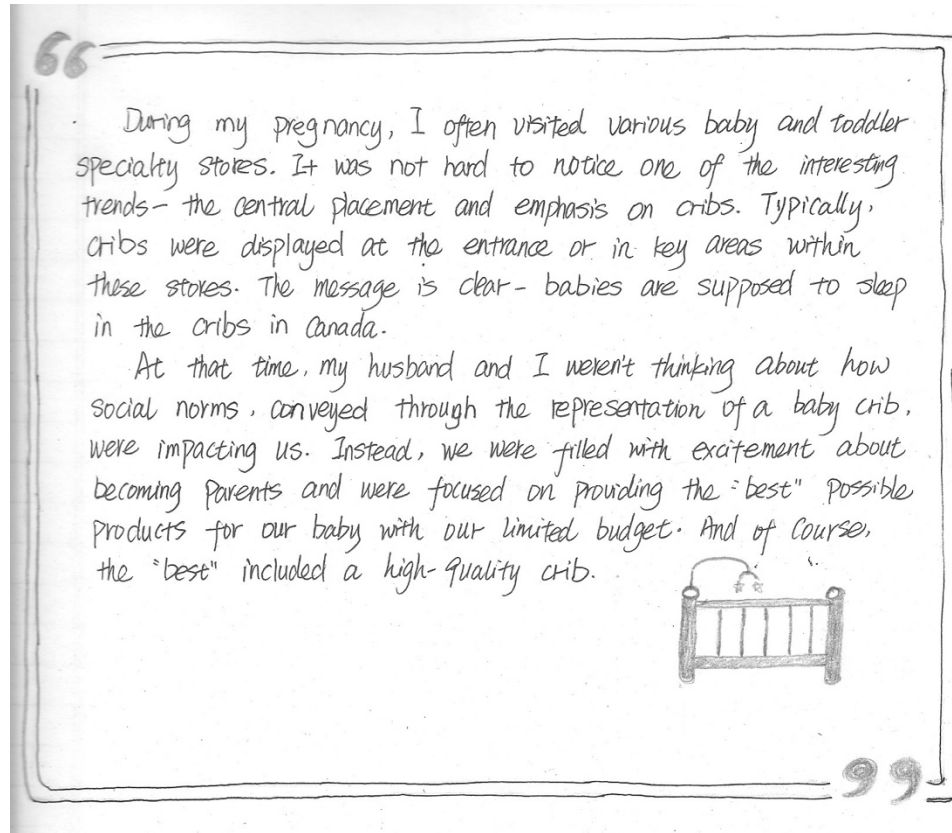 “
During my pregnancy, I often visited various baby and toddler
specialty stores. It was not hard to notice one of the interesting
trends- the central placement and emphasis on cribs. Typically,
cribs were displayed at the entrance or in key areas within
these stores. The message is clear- babies are supposed to sleep
in the cribs in Canada.
At that time, my husband and I weren't thinking about how
social norms, conveyed through the representation of a baby crib,
were impacting us. Instead, we were filled with excitement about
becoming parents and were focused on providing the "best" possible
products for our baby with our limited budget. And of course,
the "best" included a high-quality crib.
”